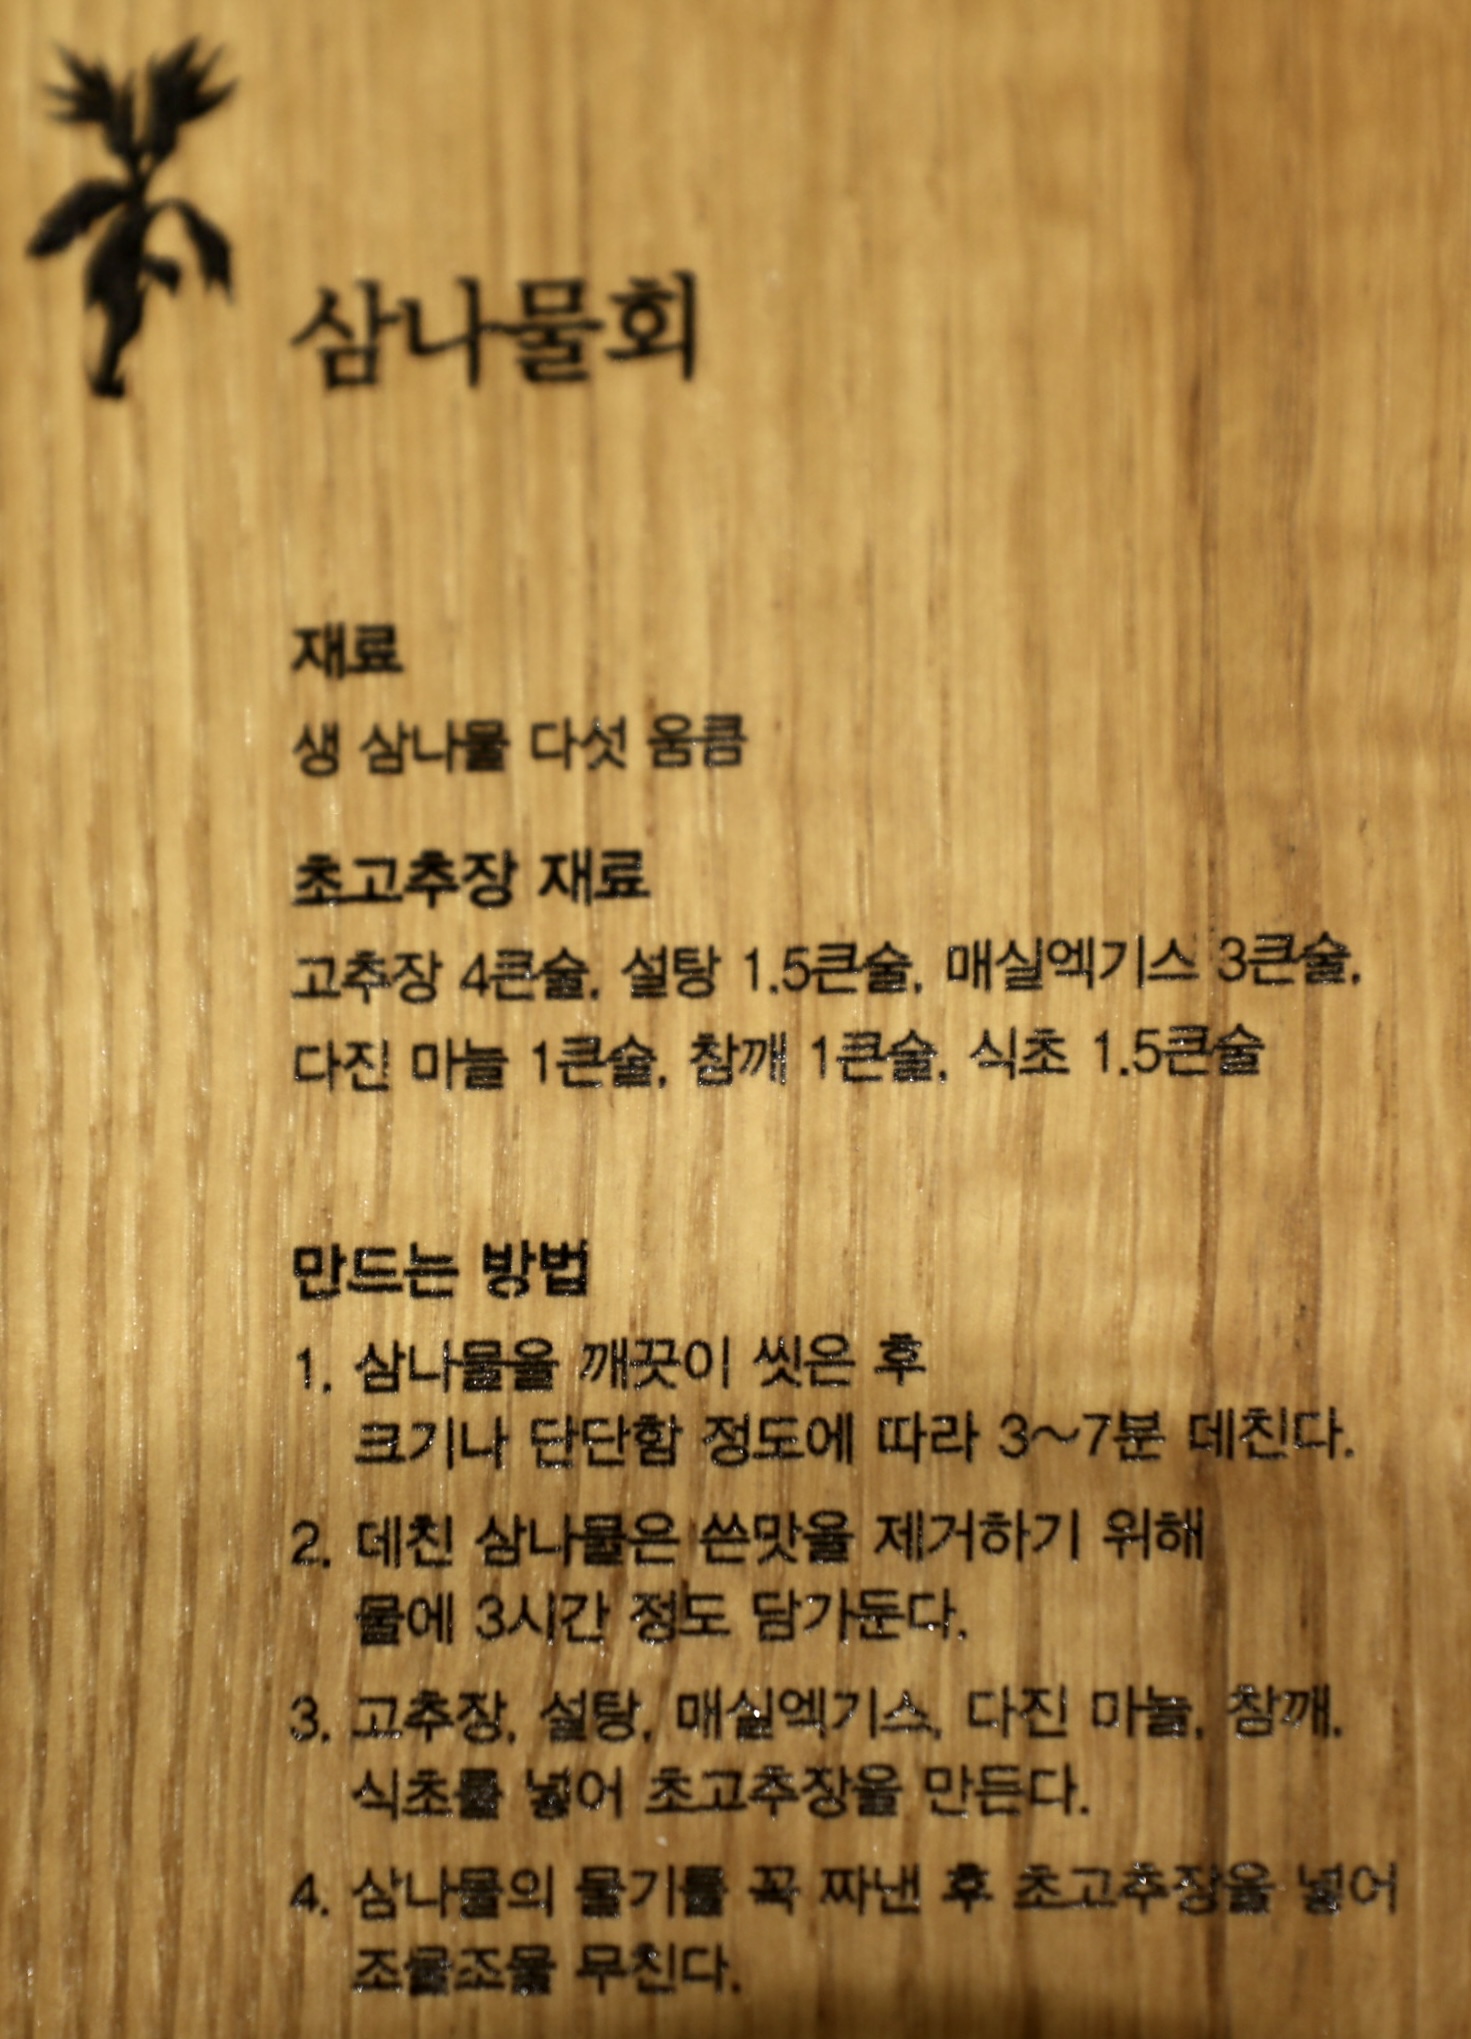 삼나물회
재료
생 삼나물 다섯 움큼
초고추장 재료
고추장 4큰술, 설탕 1.5큰술, 매실엑기스 3큰술,
다진 마늘 1큰술, 참깨 1큰술, 식초 1.5큰술
만드는 방법
1. 삼나물을 깨끗이 씻은 후
크기나 단단함 정도에 따라 3~7분 데친다.
2. 데친 삼나물은 쓴맛을 제거하기 위해
물에 3시간 정도 담가둔다.
3. 고추장, 설탕, 매실엑기스, 다진 마늘, 참깨,
식초를 넣어 초고추장을 만든다.
4. 삼나물의 물기를 꼭 짜낸 후 초고추장을 넣어
조물조물 무친다.